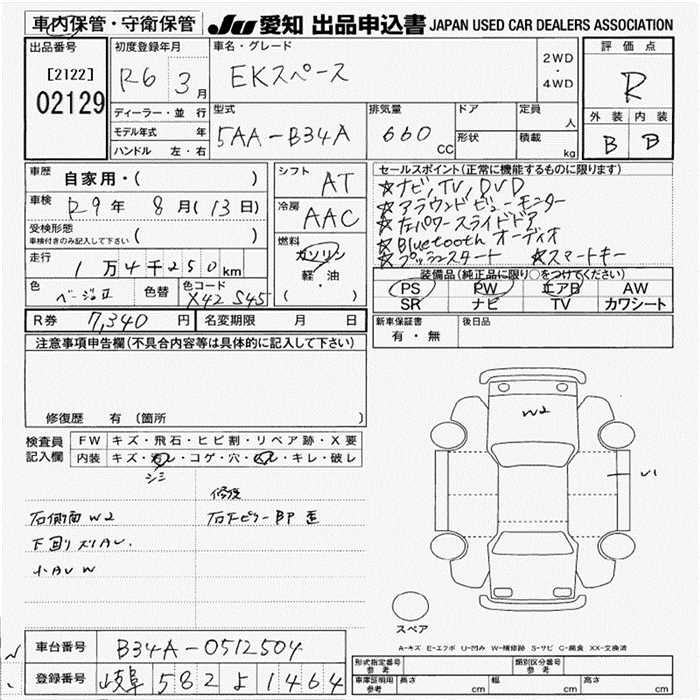 車内保管・守衛保管 JU 愛知 出品申込書 JAPAN USED CAR DEALERS ASSOCIATION
出品番号
[2122]
02129
初度登録年月
R6 3月
車名・グレード
EKスペース
2WD
・
4WD
評価点
R
外装 内装
B B
ディーラー・並行
モデル年式 年
ハンドル 左・右
型式
5AA-B34A
排気量
660 CC
ドア
形状
定員
人
積載
kg
車歴
自家用・( )
車検
R9年 8月(13日)
受検形態
車検付きのみ記入して下さい ( )
走行
1万4千250km
色
ベージュII
色替
色コード
X42 S45
シフト
AT
冷房
AAC
燃料
ガソリン
軽・油
( )
セールスポイント(正常に機能するものに限ります)
☆ナビ, TV, DVD
☆アラウンドビューモニター
☆左パワースライドドア
☆Bluetoothオーディオ
☆プッシュスタート ☆スマートキー
装備品(純正品に限り○をつけてください)
PS PW エアB AW
SR ナビ TV カワシート
R券 7,340円 名変期限 月 日
新車保証書
有・無
後日品
注意事項申告欄(不具合内容等は具体的に記入して下さい)
修復歴 有 (箇所 )
検査員
記入欄
FW キズ・飛石・ヒビ割・リペア跡・X要
内装 キズ・汚レ・コゲ・穴・スレ・キレ・破レ
シミ
修復
右側面 W2
右Fピラー BP 歪
下回りスリAU.
小AU W
W2
スペア
A-キズ E-エクボ U-凹み W-補修跡 S-サビ C-腐食 XX-交換済
車台番号 B34A-0512504
登録番号 岐阜 582 よ 1464
形式指定番号
参考
類別区分番号
参考
車庫証明用
参考
長さ cm 幅 cm 高さ cm